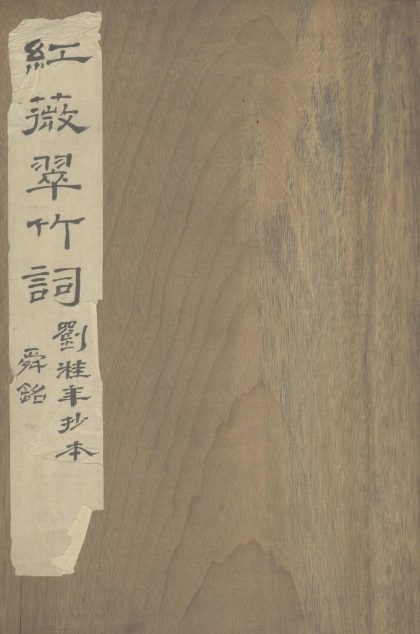 紅薇翠竹詞
劉桂年抄本
舜銘